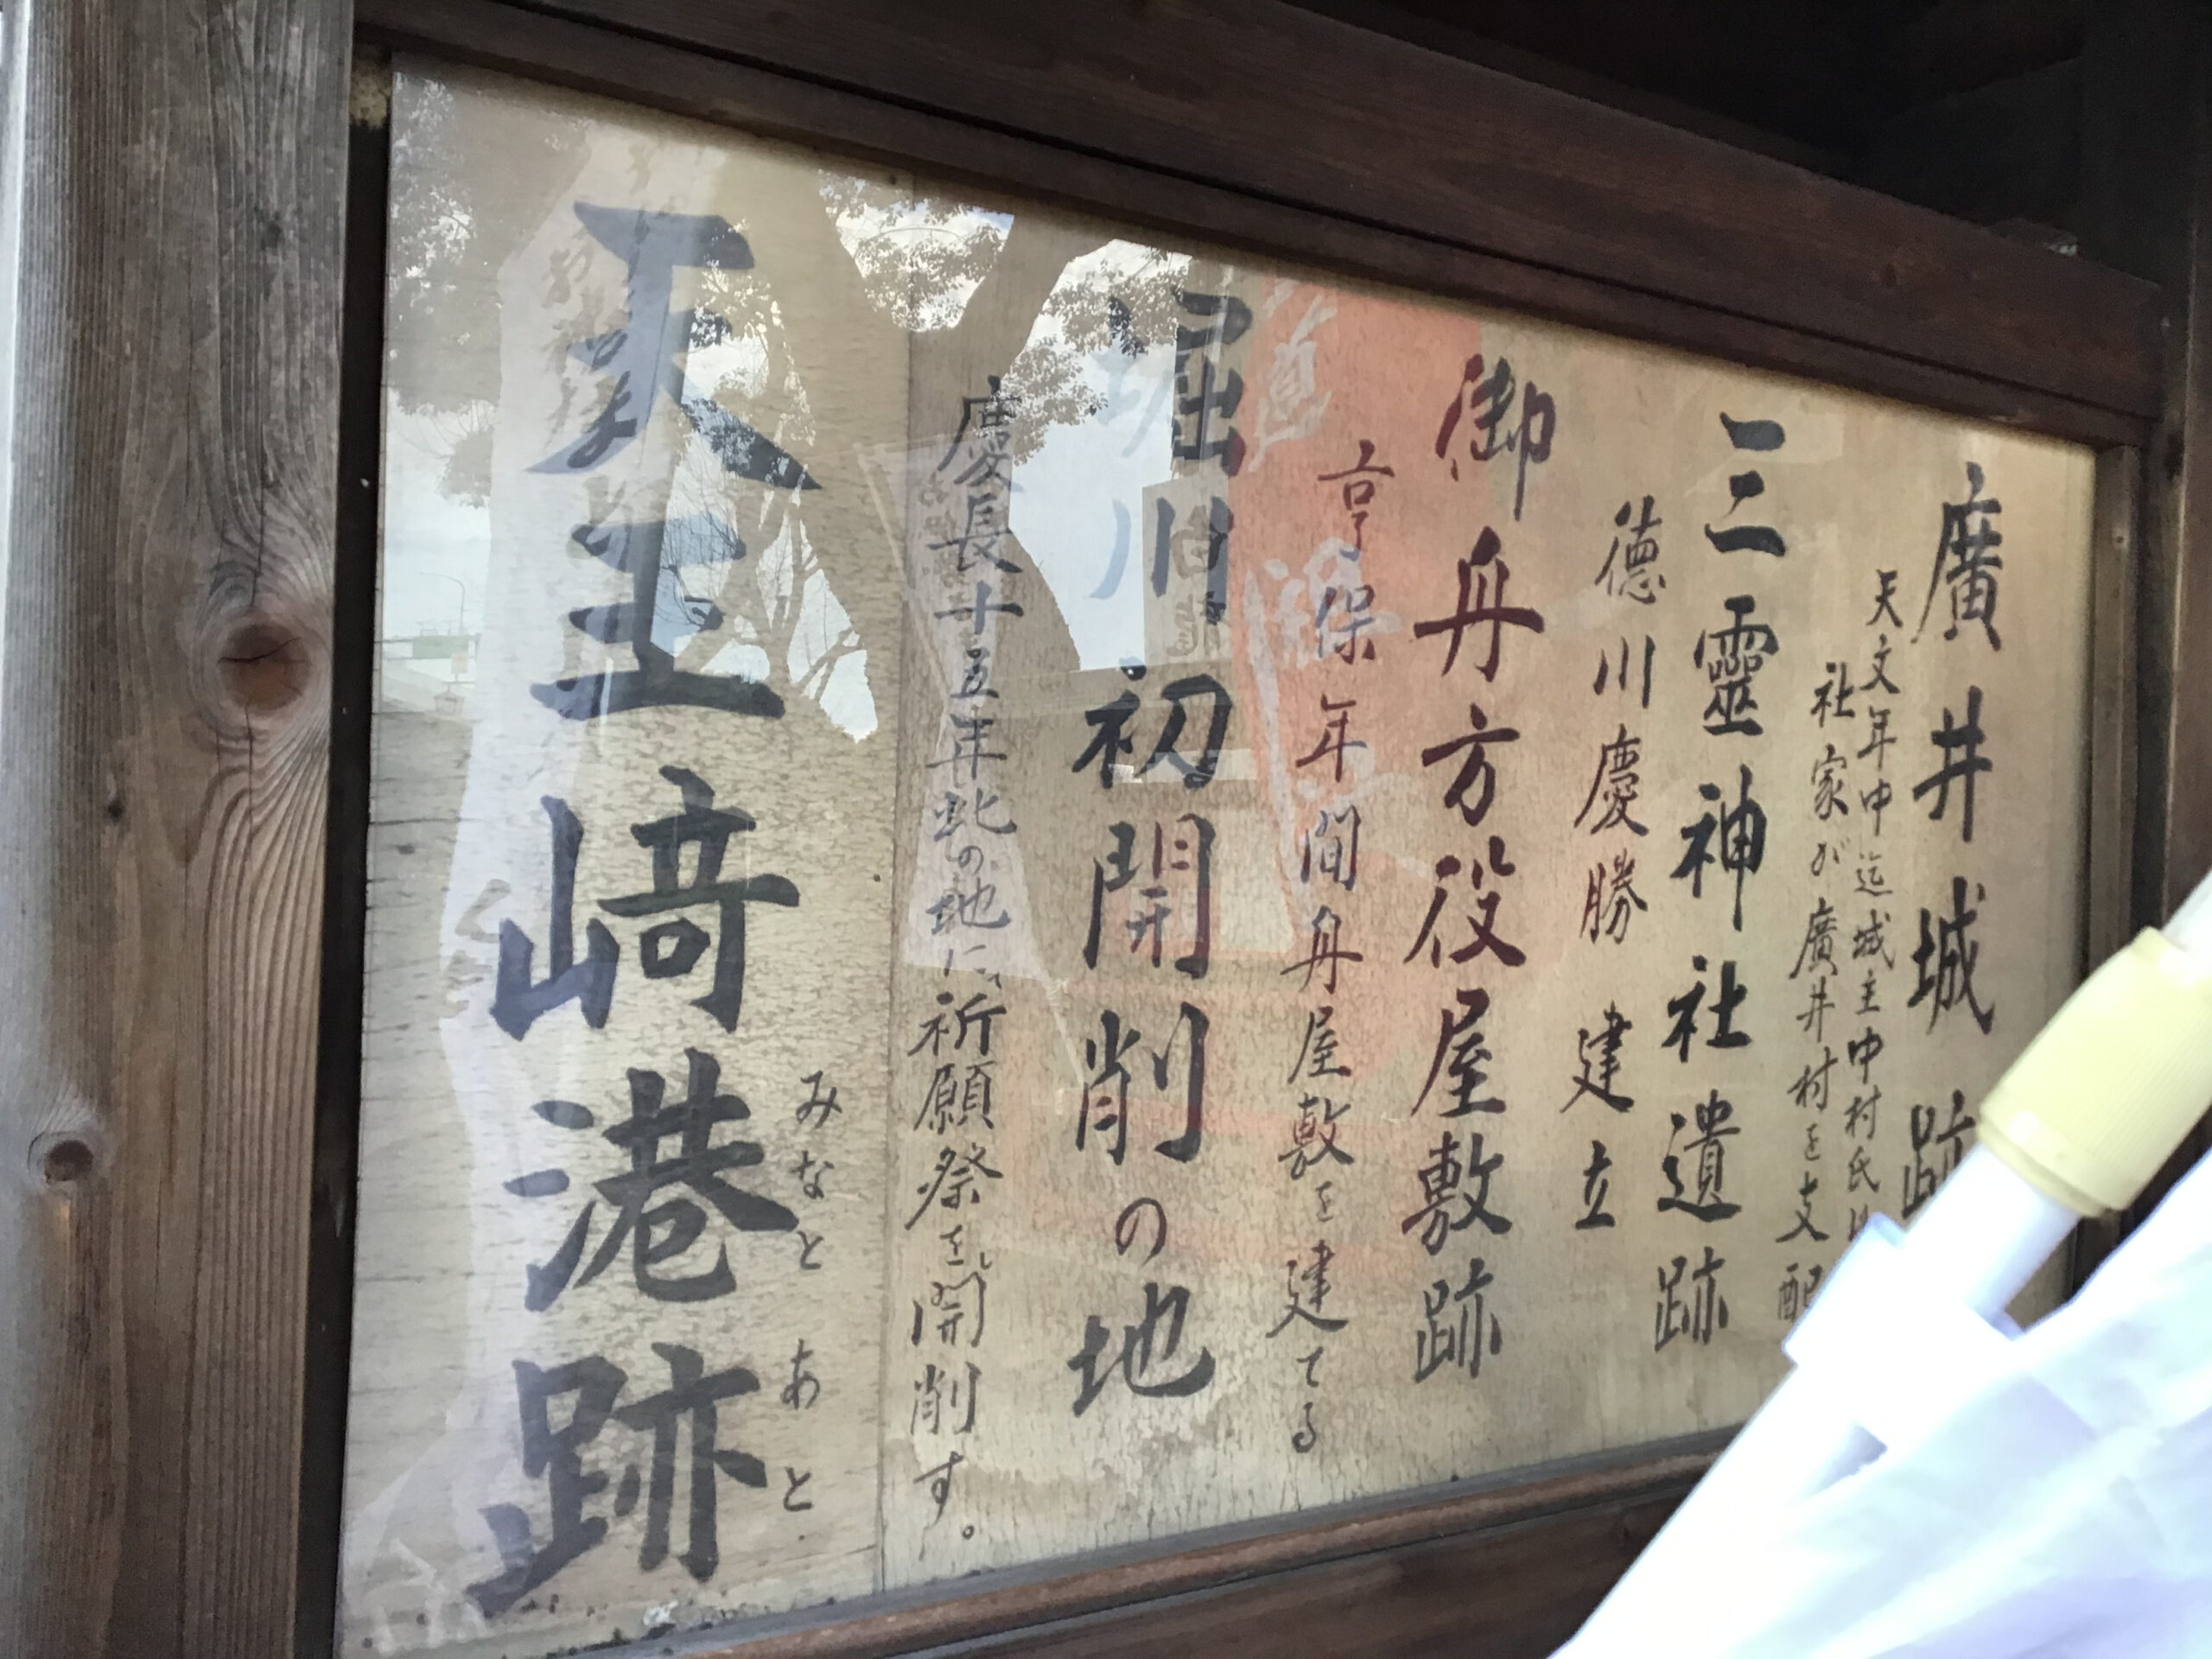 廣井城跡
天文年中迄城主中村氏
社家が廣井村を支配
三霊神社遺跡
徳川慶勝 建立
御舟方役屋敷跡
享保年間舟屋敷を建てる
堀川初開削の地
慶長十五年此の地に祈願祭をし開削す。
天王崎港跡
みなと あと